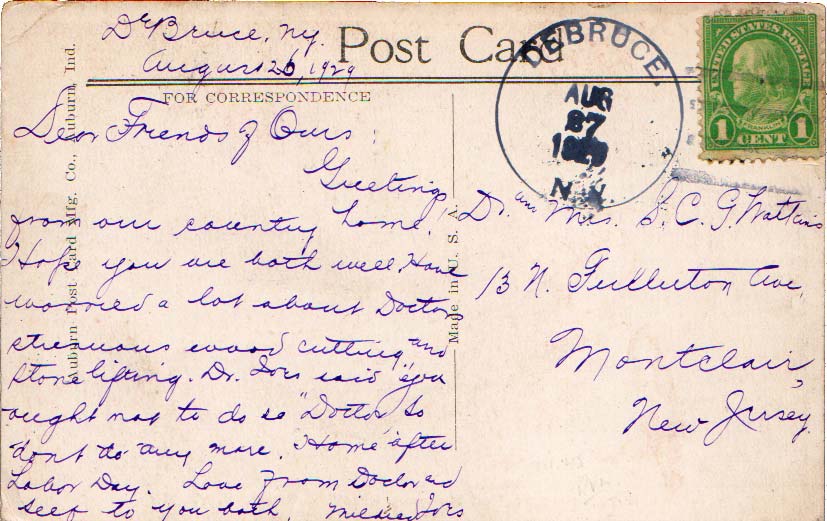 DeBruce, Ny.
August 26, 1929
Post Card
FOR CORRESPONDENCE
Auburn Post Card Mfg. Co., Auburn, Ind.
Made in U. S. A.
Dear Friends of Ours:
Greeting
from our country home.
Hope you are both well. Have
worried a lot about Doctors
strenuous wood cutting and
stone lifting. Dr. said "you
ought not to do so" Doctor, so
don't do any more. Home after
Labor Day. Love from Doctor and
self to you both. Mildred
DEBRUCE.
AUG
27
1929
N.Y.
UNITED STATES POSTAGE
FRANKLIN
1 CENT 1
Dr. and Mrs. S. C. G. Watkins
13 N. Fullerton Ave,
Montclair,
New Jersey.